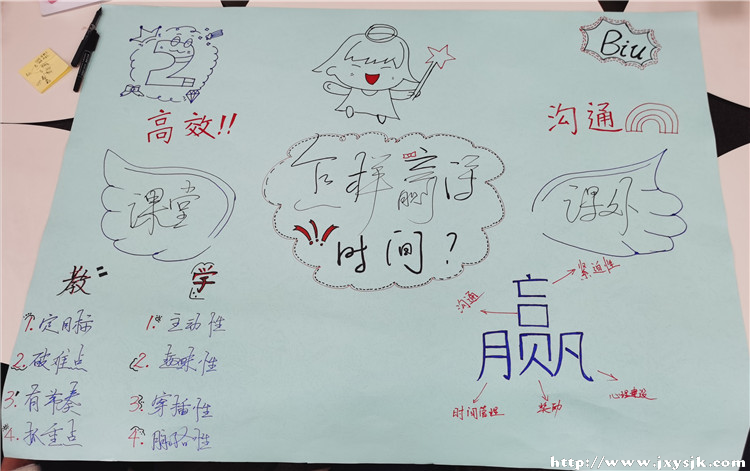 2
Biu
高效!!
沟通
怎样赢得
时间？
课堂
课外
教
学
1. 定目标
2. 破难点
3. 有节奏
4. 抓重点
1. 主动性
2. 趣味性
3. 穿插性
4. 脉络性
紧迫性
沟通
亡
口
月贝凡
时间管理
奖励
心理建设
http://www.jxysjk.com/